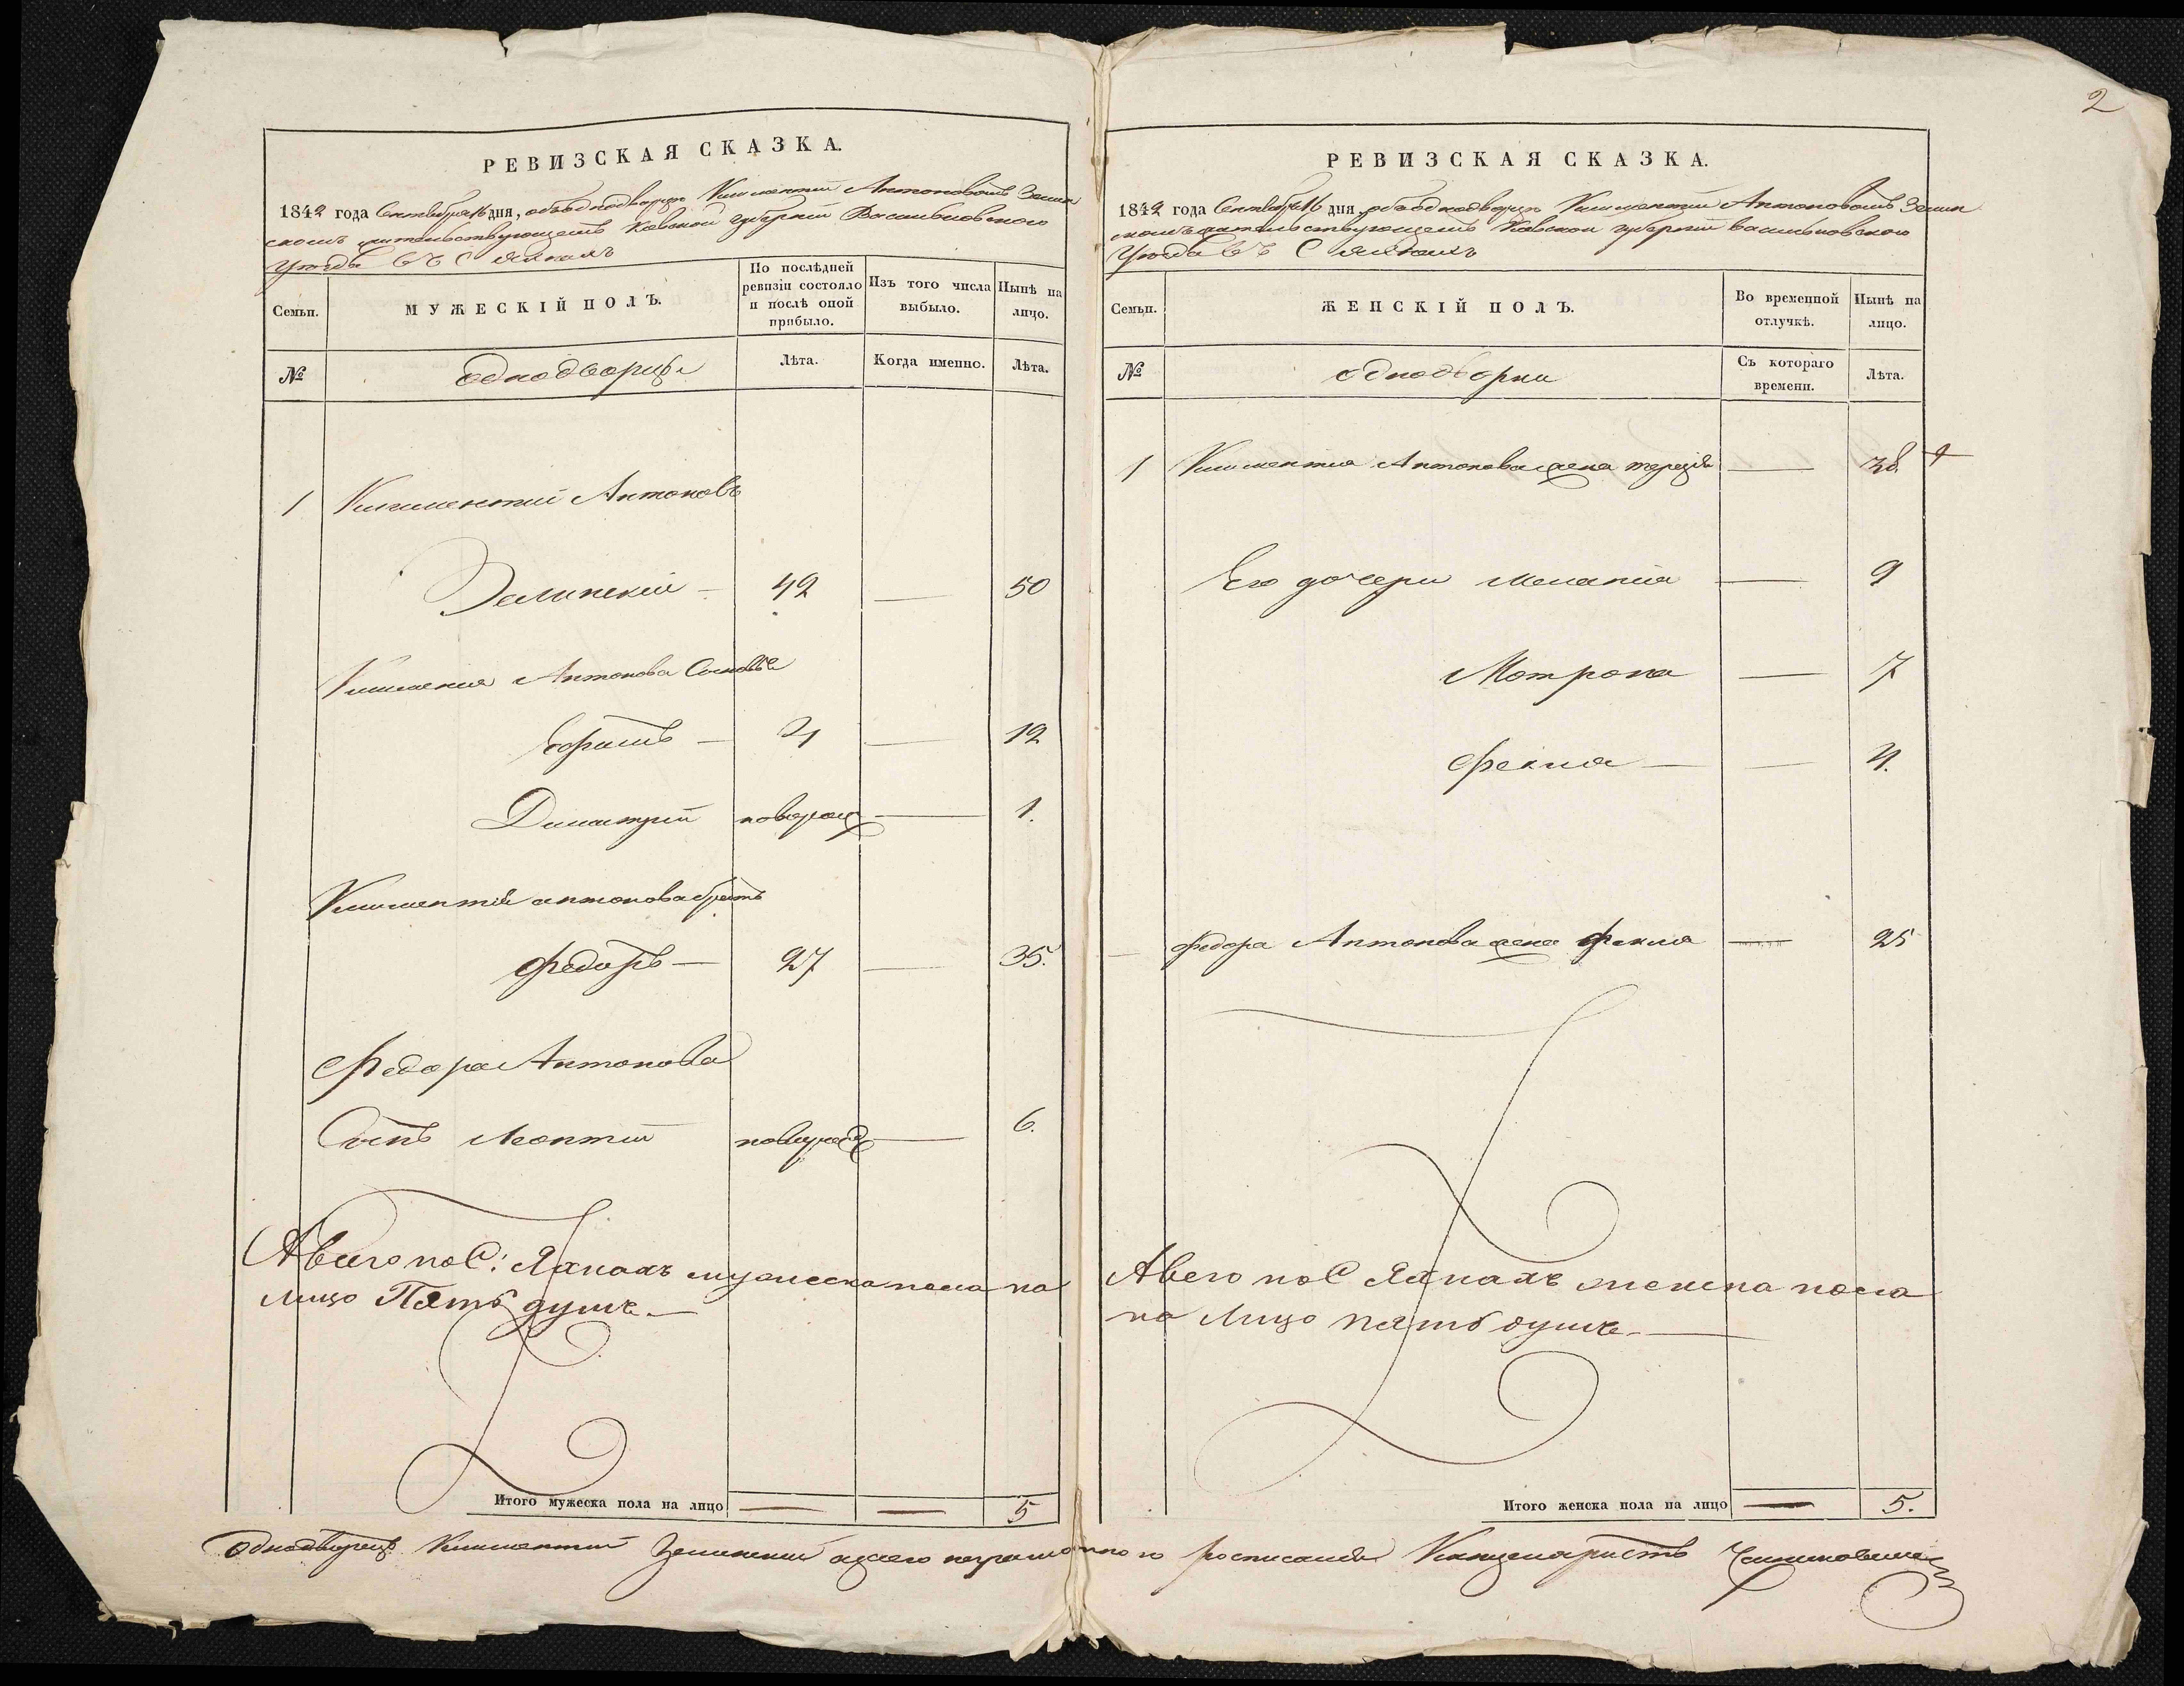 2
РЕВИЗСКАЯ СКАЗКА.
1842 года Сентября 16 дня, объ однодворце Климентии Антоновомъ Зелин
скомъ жительствующемъ Киевской губернии Васильковского
уезда въ С Яхнахъ
Семьи.
МУЖЕСКІЙ ПОЛЪ.
По послѣдней ревизіи состояло и послѣ оной прибыло.
Изъ того числа выбыло.
Нынѣ на лицо.
№
однодворцы
Лѣта.
Когда именно.
Лѣта.
1 Климентий Антоновъ
Зелинский — 42 — 50
Климентия Антонова Сыновья
Ефимъ — 4 — 12
Димитрий новорож — 1.
Климентия Антонова братъ
Федоръ — 27 — 35.
Федора Антонова
Сынъ Леонтий новорожд — 6.
А всего по С: Яхнахъ мужеска пола на
лицо Пять душъ —
Итого мужеска пола на лицо — — 5
РЕВИЗСКАЯ СКАЗКА.
1842 года Сентября 16 дня, объ однодворце Климентии Антоновомъ Зелин
скомъ жительствующемъ Киевской губернии Васильковского
уезда въ С Яхнахъ
Семьи.
ЖЕНСКІЙ ПОЛЪ.
Во временной отлучкѣ.
Нынѣ на лицо.
№
однодворки
Съ котораго времени.
Лѣта.
1 Климентия Антонова жена Терезия — 38.
Его дочери Мелания — 9
Мотрона — 7
Фекла — — 4.
Федора Антонова жена Фекла — 25
А всего по С Яхнахъ женска пола
на Лицо пять душъ —
Итого женска пола на лицо — 5.
Однодворецъ Климентий Зелинский а за него неграмотного росписался Канцеляристъ